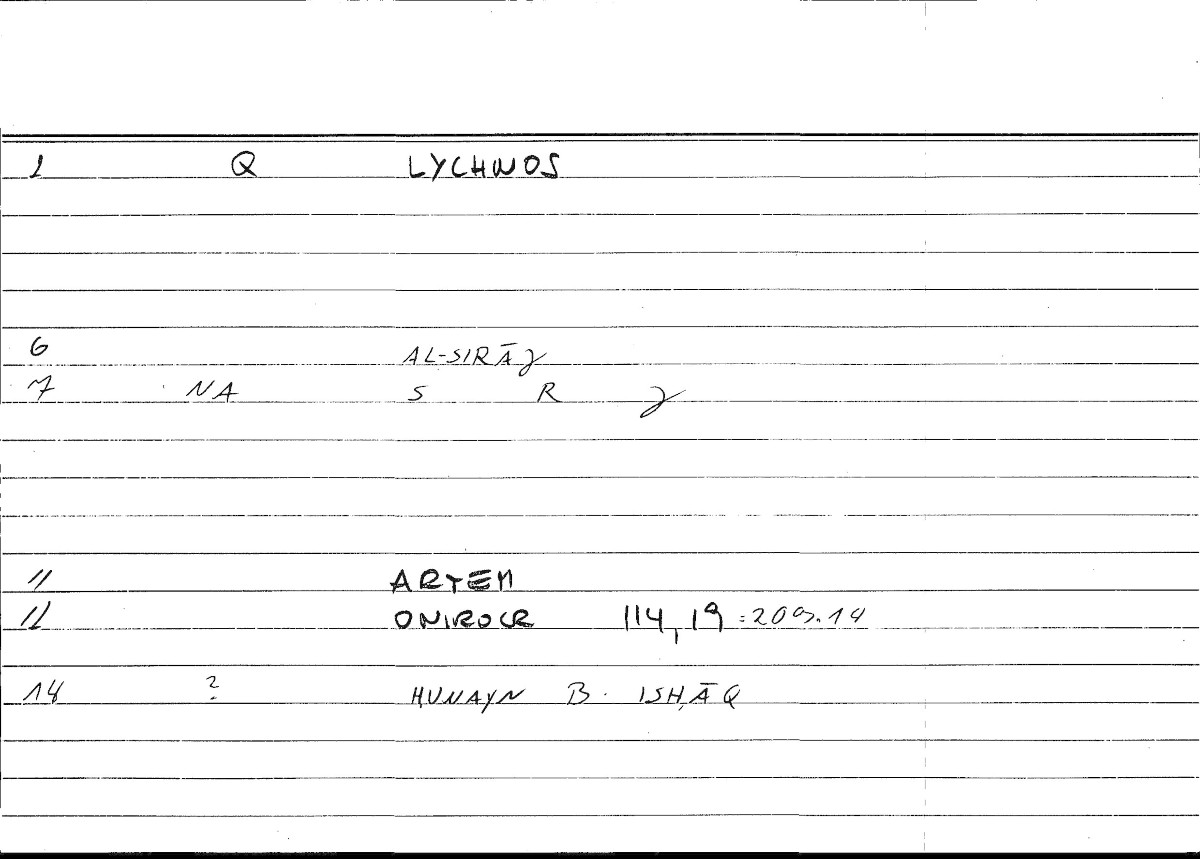 1 Q LYCHNOS
6 AL-SIRĀǦ
7 NA S R Ǧ
11 ARTEM
12 ONIROCR 114,19 : 209.14
14 ? ḤUNAYN B. ISḤĀQ